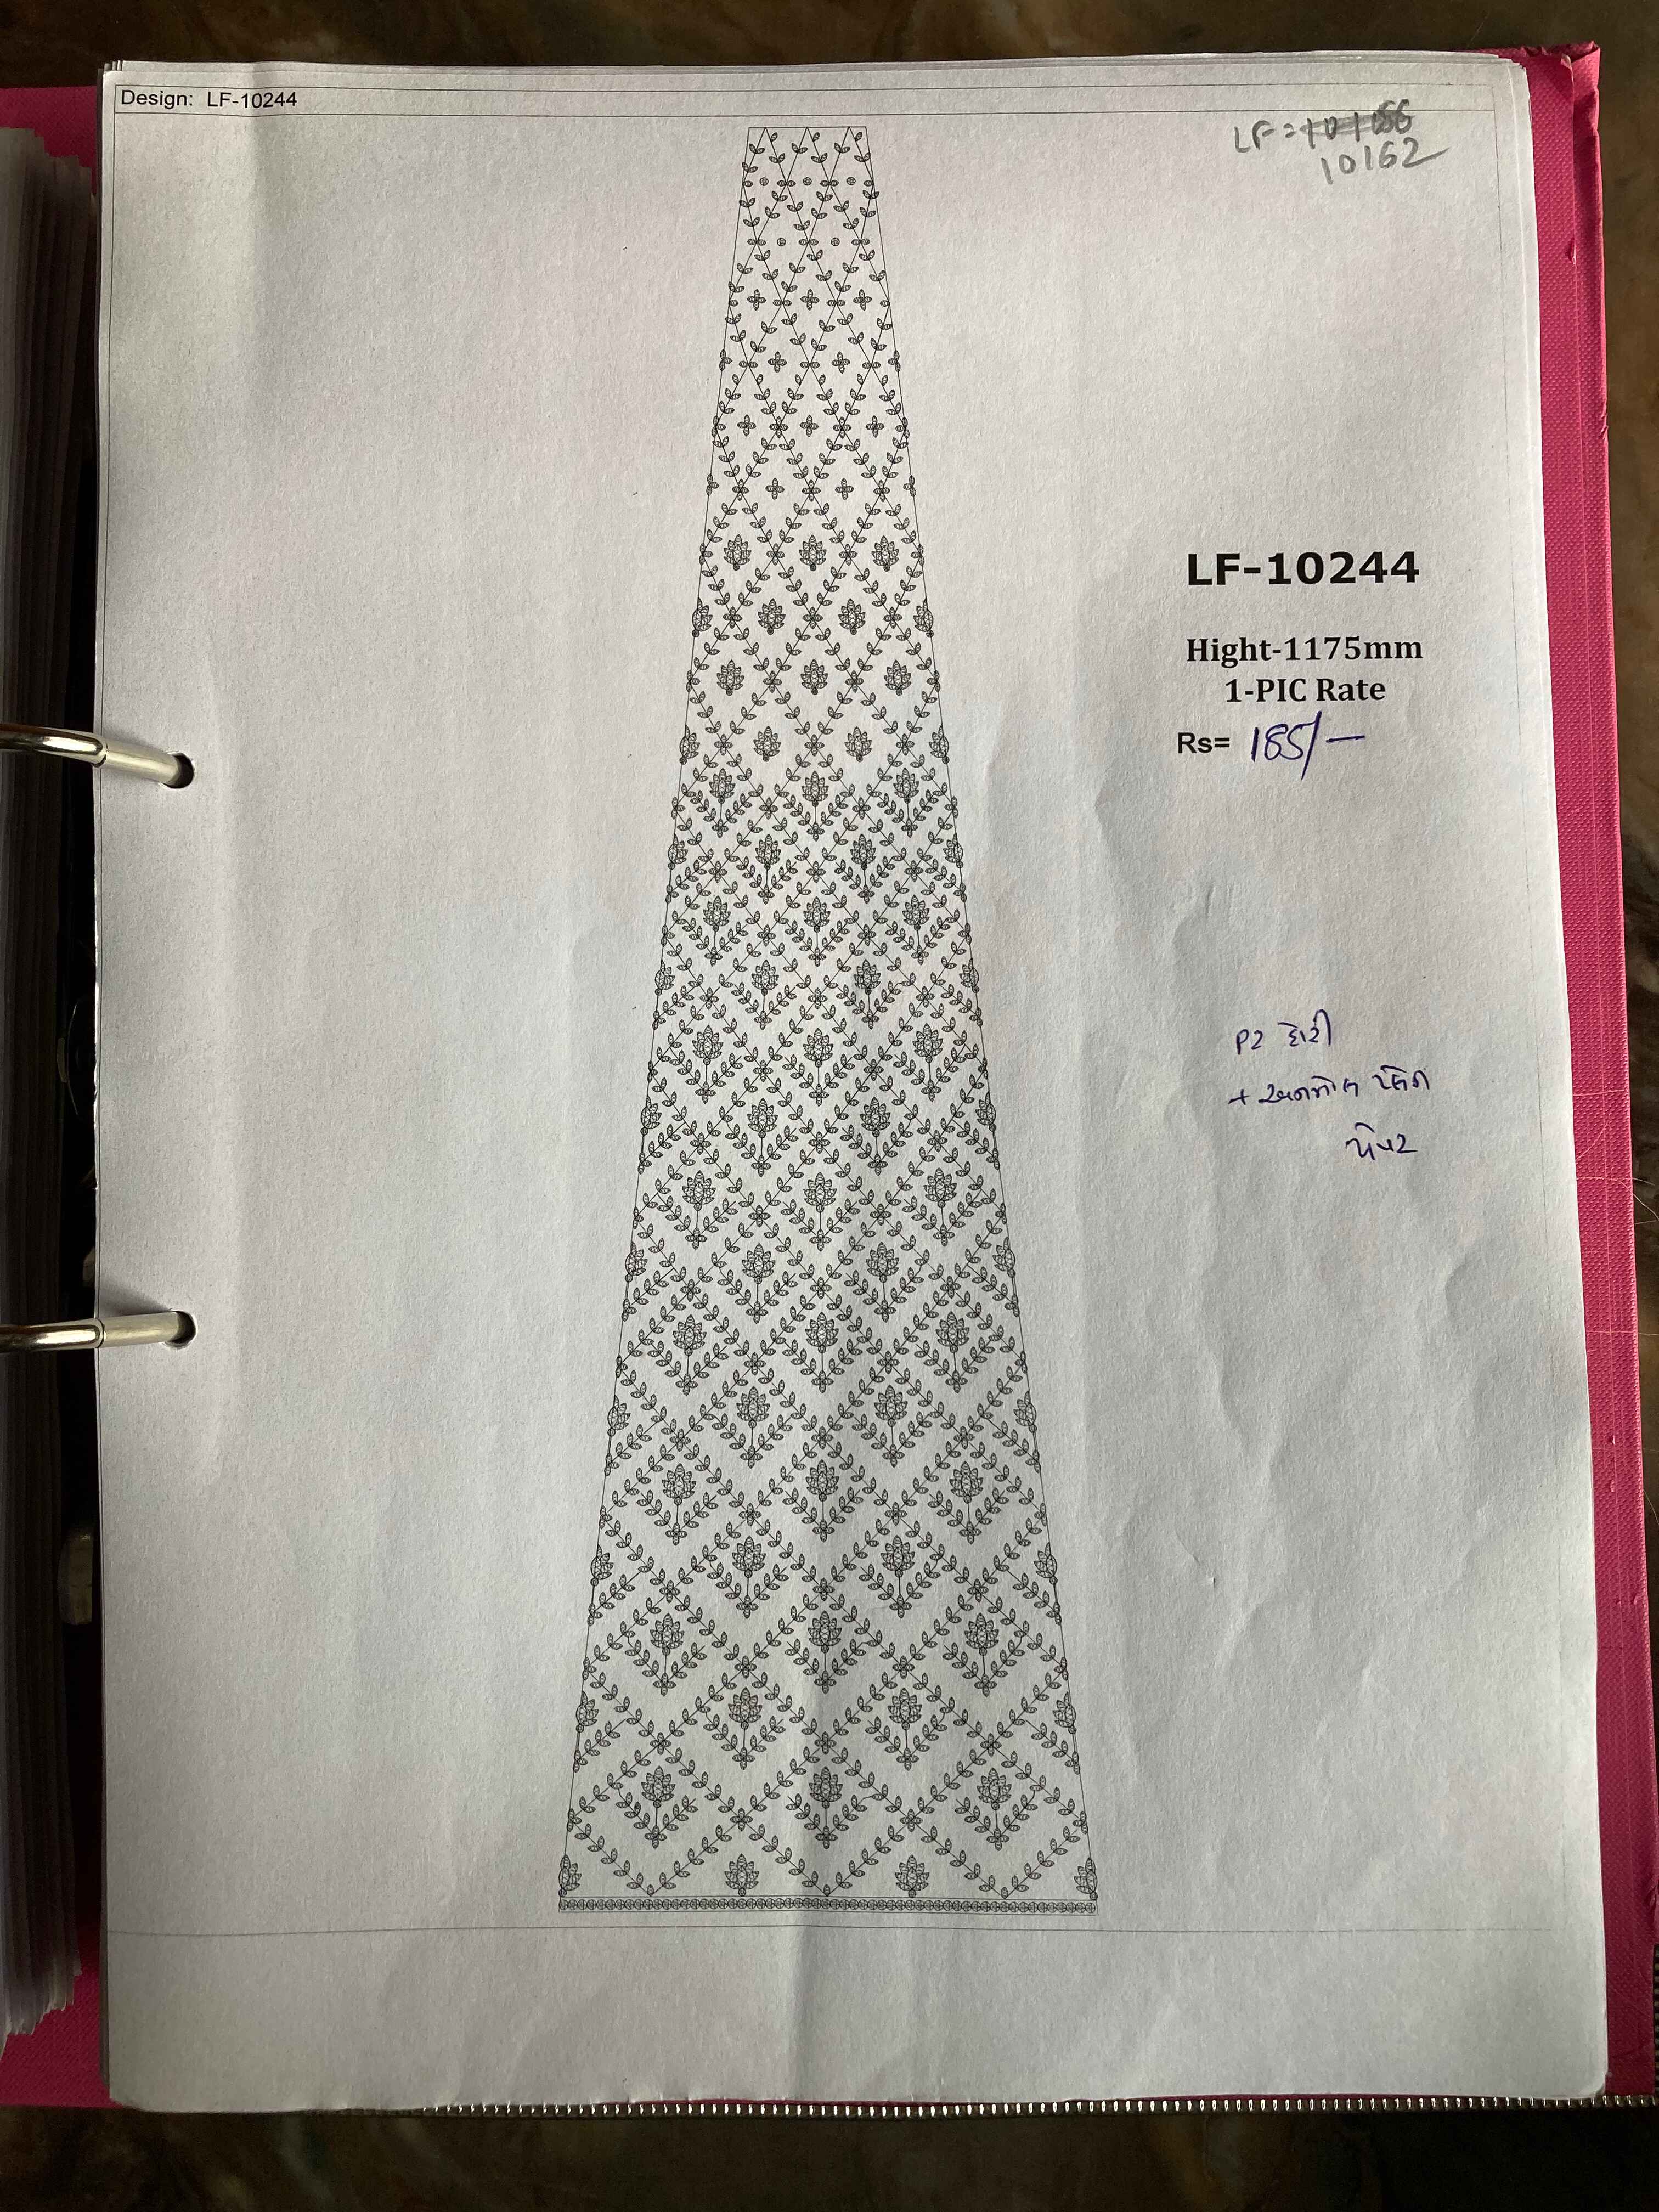 Design: LF-10244
LF=
10162
LF-10244
Hight-1175mm
1-PIC Rate
Rs= 185/-
P2 દોરી
+
પેપર